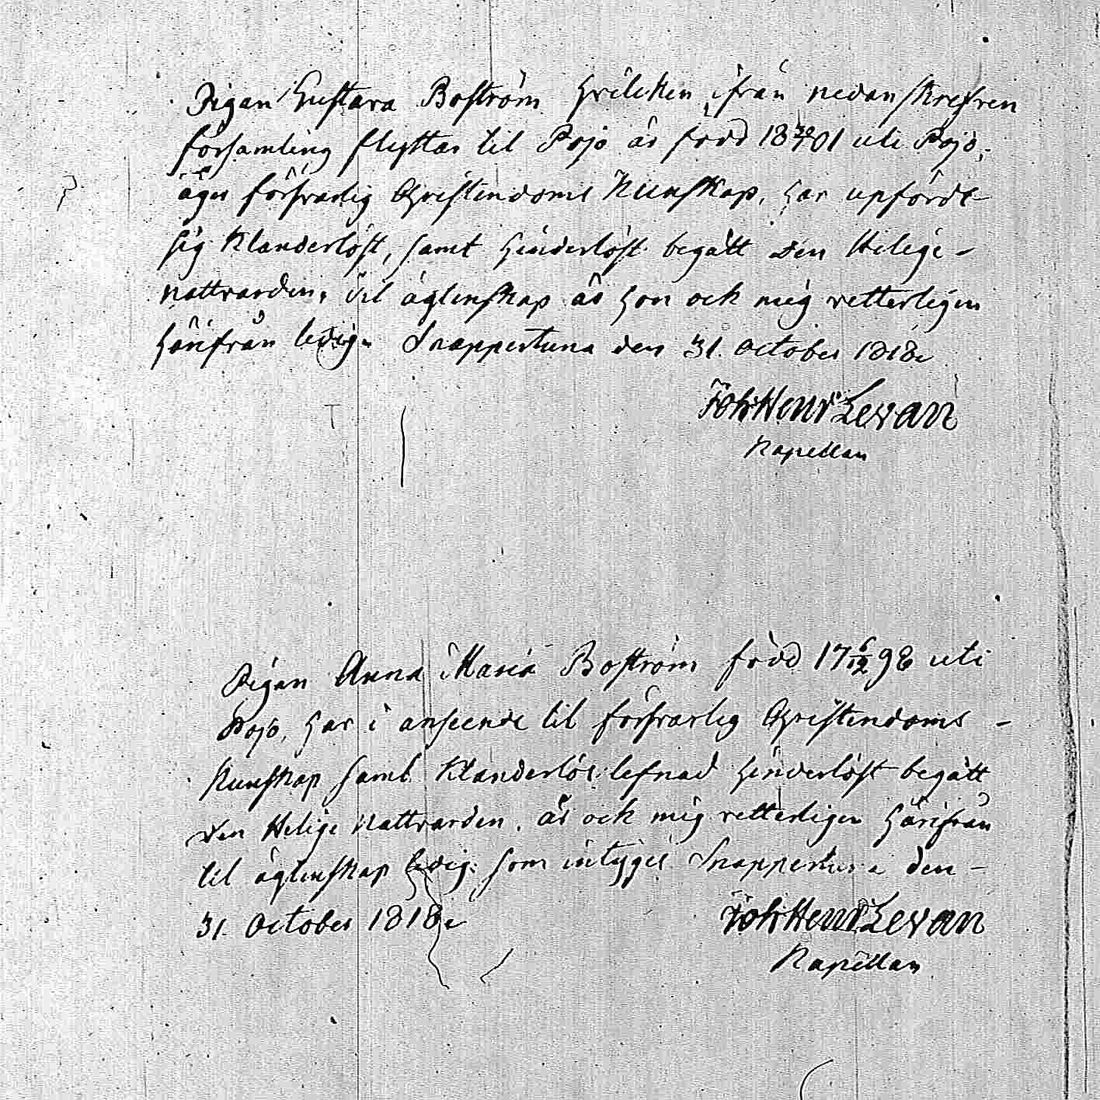 Pigan Gustava Boström hvilcken ifrån nedanskrefven
församling flyttar til Pojo är född 18 01 uti Pojo,
äger försvarlig Christendoms Kunskap, har upfördt
sig Klanderlöst, samt hinderlöst begått den Helige
nattvarden, til ägtenskap är hon ock mig vetterligen
härifrån ledig. Snappertuna den 31. October 1818.
Joh Henr Levan
Kapellan
Pigan Anna Maria Boström född 17 6/12 98 uti
Pojo, har i anseende til försvarlig Christendoms
Kunskap samt Klanderlös lefnad hinderlöst begått
den Helige Nattvarden. är ock mig vetterligen härifrån
til ägtenskap ledig: som intygas Snappertuna den
31. October 1818.
Joh Henr Levan
Kapellan